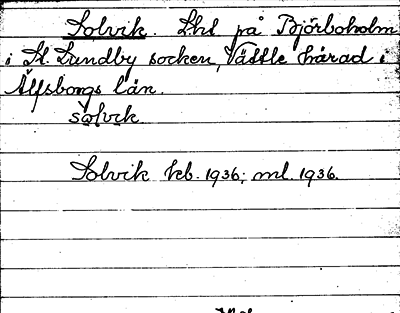 Solvik. Lht på Björboholm
i St. Lundby socken, Vättle härad i
Älfsborgs län.
sọlvik
Solvik kb. 1936; ml. 1936.